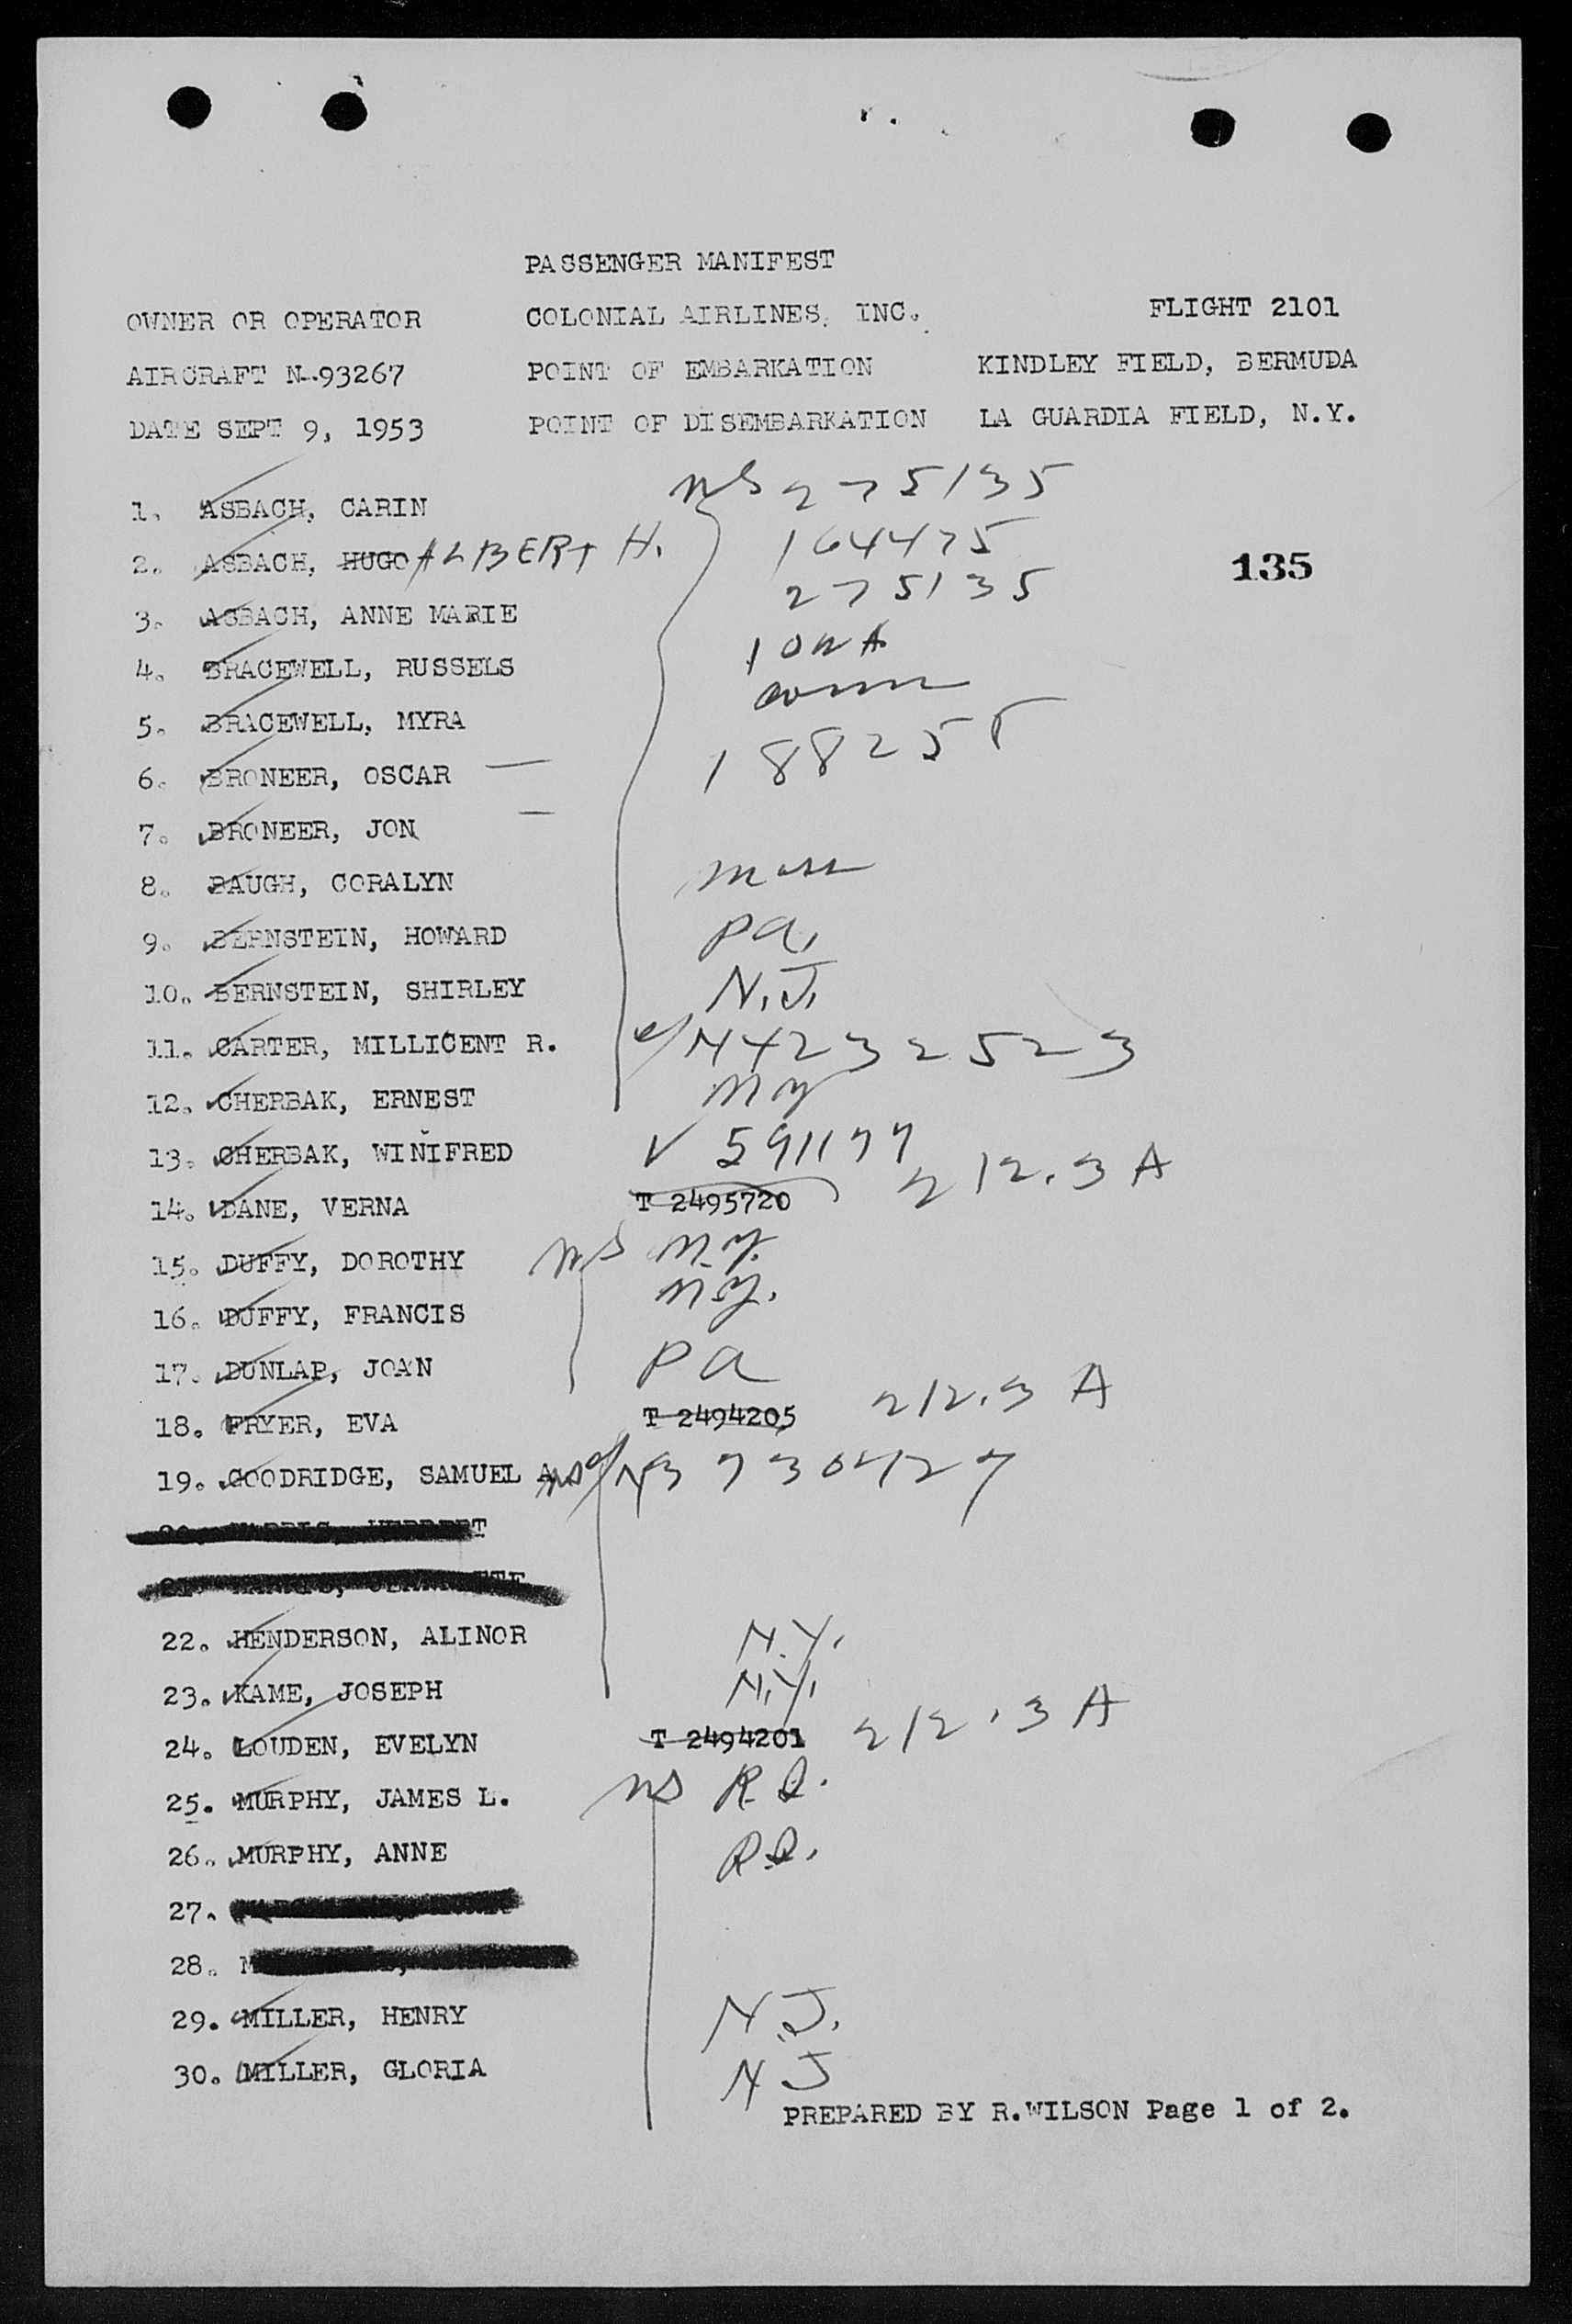 PASSENGER MANIFEST
OWNER OR OPERATOR COLONIAL AIRLINES, INC. FLIGHT 2101
AIRCRAFT N-93267 POINT OF EMBARKATION KINDLEY FIELD, BERMUDA
DATE SEPT 9, 1953 POINT OF DISEMBARKATION LA GUARDIA FIELD, N.Y.
1. ASBACH, CARIN 275135
2. ASBACH, HUGO ALBERT H. 164475
135
3. ASBACH, ANNE MARIE 275135
4. BRACEWELL, RUSSELS
5. BRACEWELL, MYRA Conn
6. BRONEER, OSCAR — 188255
7. BRONEER, JON —
8. BAUGH, CORALYN Mass
9. BERNSTEIN, HOWARD Pa.
10. BERNSTEIN, SHIRLEY N.J.
11. CARTER, MILLICENT R.
12. CHERBAK, ERNEST NY
13. CHERBAK, WINIFRED V 591177
14. DANE, VERNA T 2495720 212.3 A
15. DUFFY, DOROTHY N.Y.
16. DUFFY, FRANCIS N.Y.
17. DUNLAP, JOAN Pa
18. FRYER, EVA T 2494205 212.3 A
19. GOODRIDGE, SAMUEL A.
22. HENDERSON, ALINOR N.Y.
23. KAME, JOSEPH N.Y.
24. LOUDEN, EVELYN T 2494201 212.3 A
25. MURPHY, JAMES L.
26. MURPHY, ANNE
27.
28. M
29. MILLER, HENRY N.J.
30. MILLER, GLORIA NJ
PREPARED BY R.WILSON Page 1 of 2.